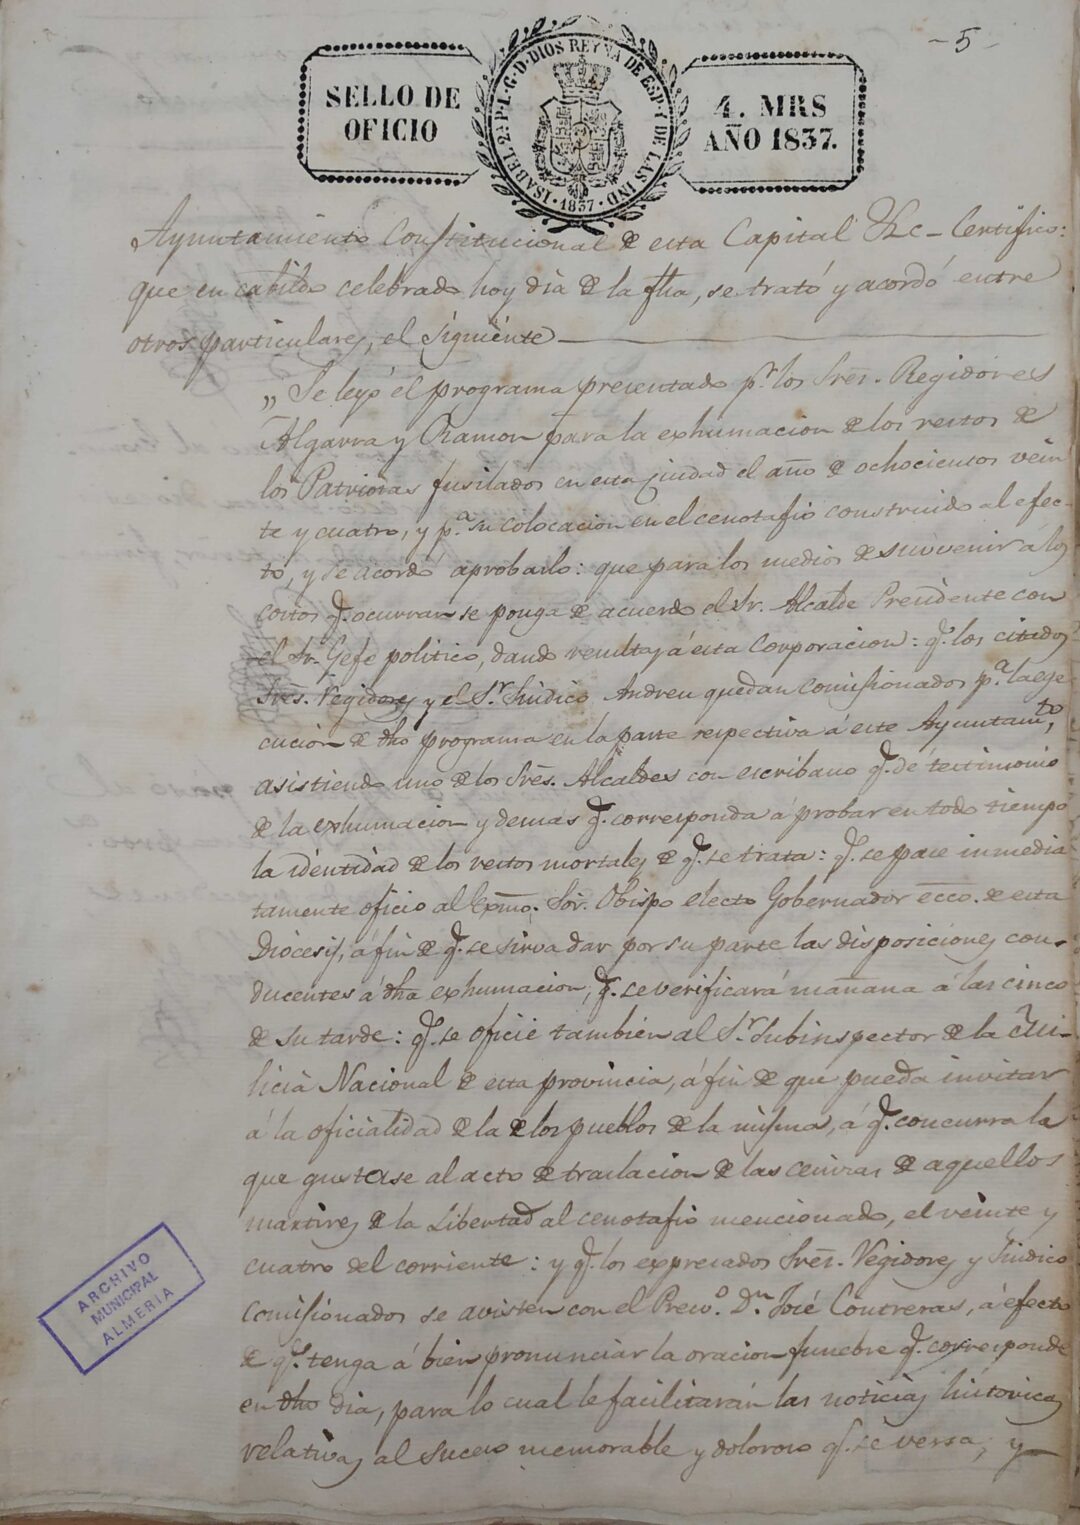 -5-
SELLO DE
OFICIO
ISABEL 2ª P. L. G. D. DIOS REYNA DE ESP. Y DE LAS IND
· 1837 ·
4. MRS
AÑO 1837.
Ayuntamiento Constitucional de esta Capital &c - Certifico:
que en cabildo celebrado hoy dia de la fha, se trató y acordó entre
otros particulares, el siguiente
„ Se leyó el programa presentado pr. los Sres. Regidores
Algarra y Ramon para la exhumacion de los restos de
los Patriotas fusilados en esta ciudad el año de ochocientos vein
te y cuatro, y pa. su colocacion en el cenotafio construido al efec-
to, y se acordó aprobarlo: que para los medios de subvenir a los
costos q. ocurran se ponga de acuerdo el Sr. Alcalde Presidente con
el Sr. Gefe politico, dando resultas á esta Corporacion: q. los citados
Sres. Regidores y el Sr. Sindico Andreu quedan comisionados pa. la eje
cucion de dho programa en la parte respectiva á este Ayuntamto,
asistiendo uno de los Sres. Alcaldes con escribano q. dé testimonio
de la exhumacion y demas q. corresponda á probar en todo tiempo
la identidad de los restos mortales de q. se trata: q. se pase inmedia
tamente oficio al Exmo. Sor. Obispo electo Gobernador ecco. de esta
Diocesis, á fin de q. se sirva dar por su parte las disposiciones con-
ducentes á dha exhumacion, q. se verificará mañana á las cinco
de su tarde: q. se oficie tambien al Sr. Subinspector de la Mi-
licia Nacional de esta provincia, á fin de que pueda invitar
á la oficialidad de la de los pueblos de la misma, á q. concurra la
que gustase al acto de traslacion de las cenizas de aquellos
martires de la Libertad al cenotafio mencionado, el veinte y
cuatro del corriente: y q. los expresados Sres. Regidores y Sindico
comisionados se avisten con el Presvo. Dn. José Contreras, á efecto
de q. tenga á bien pronunciar la oracion funebre q. corresponde
en dho dia, para lo cual le facilitarán las noticias historicas
relativas al suceso memorable y doloroso q. se versa, y
ARCHIVO
MUNICIPAL
ALMERIA